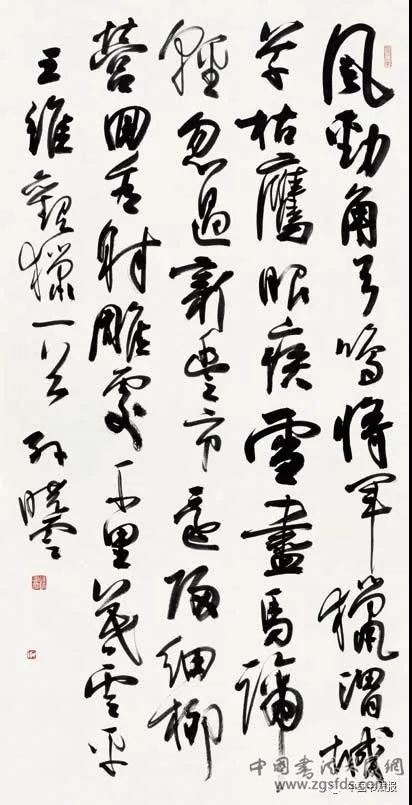 風勁角弓鳴將軍獵渭城
草枯鷹眼疾雪盡馬蹄
輕忽過新豐市還歸細柳
營回看射雕處千里暮雲平
王維觀獵一首 孫曉雲
www.zgsfds.com
中国书法报